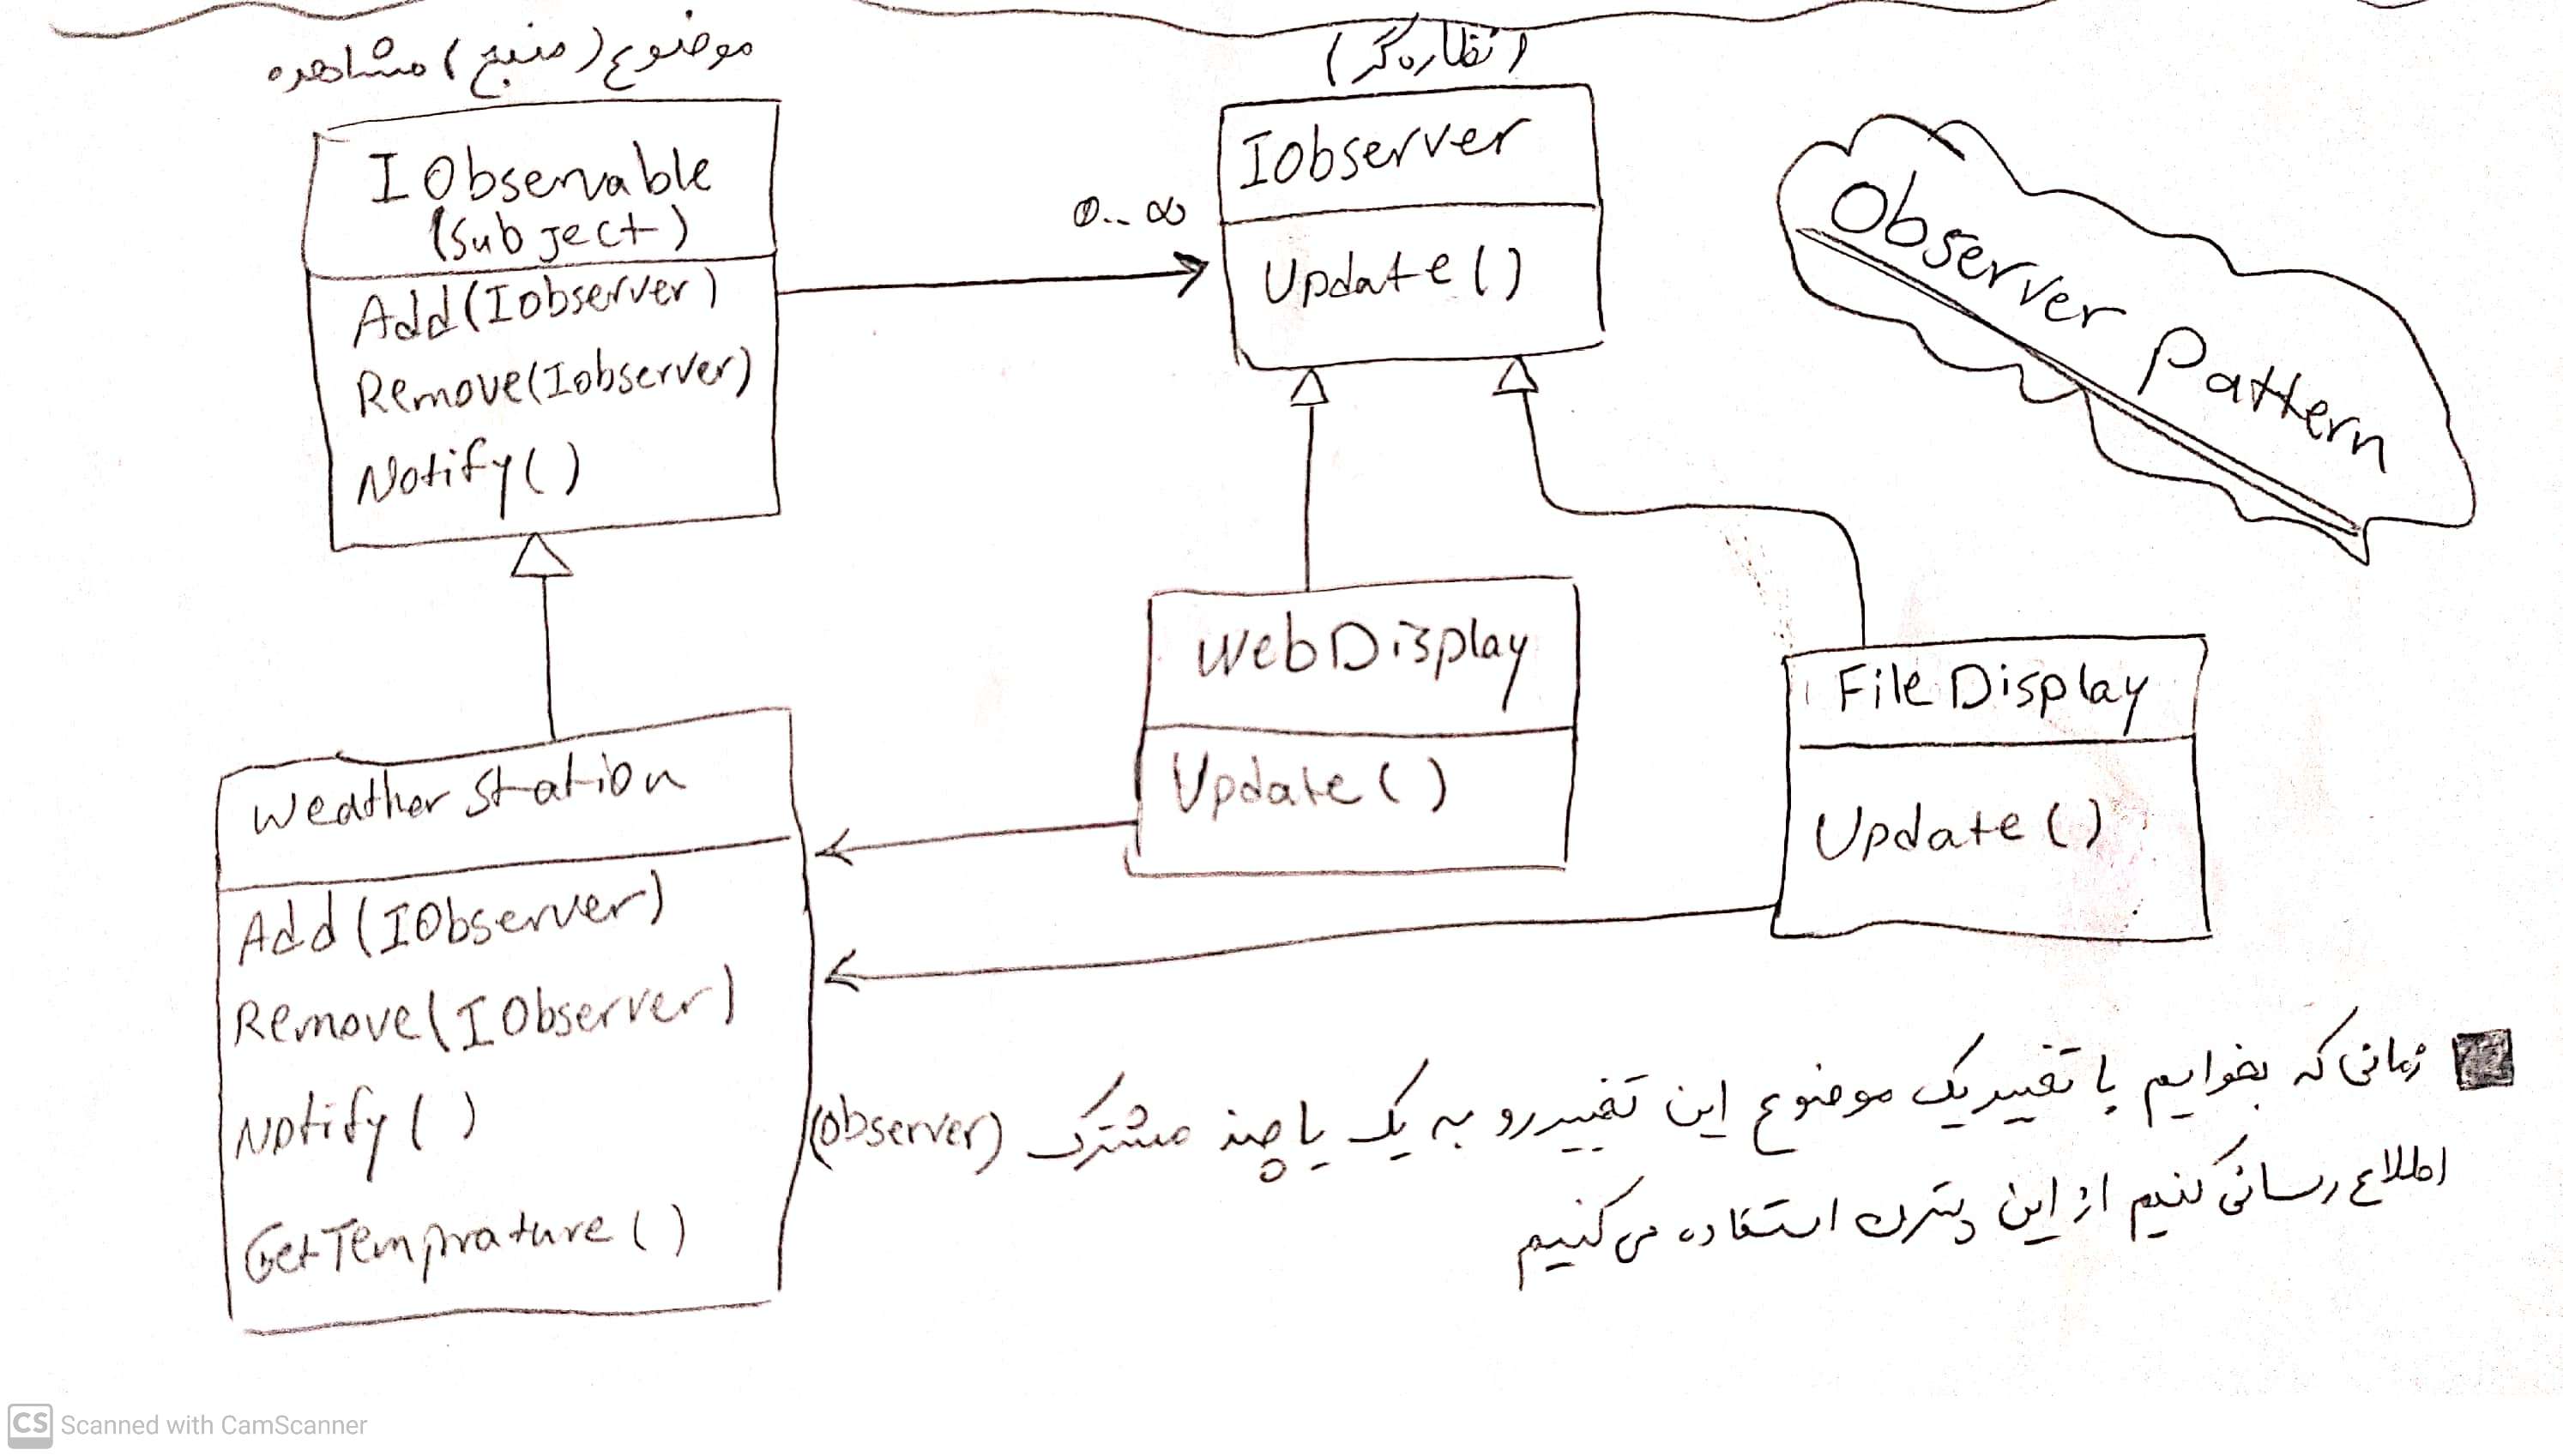 موضوع (منبع) مشاهده
IObservable
(Subject)
Add(Iobserver)
Remove(Iobserver)
Notify()
(نظاره‌گر)
Iobserver
Update()
0..∞
Observer Pattern
WebDisplay
Update()
File Display
Update()
Weather Station
Add(IObserver)
Remove(IObserver)
Notify()
GetTemprature()
زمانی که بخوایم با تغییر یک موضوع این تغییر رو به یک یا چند مشترک (observer)
اطلاع رسانی کنیم از این پترن استفاده می‌کنیم
CS Scanned with CamScanner